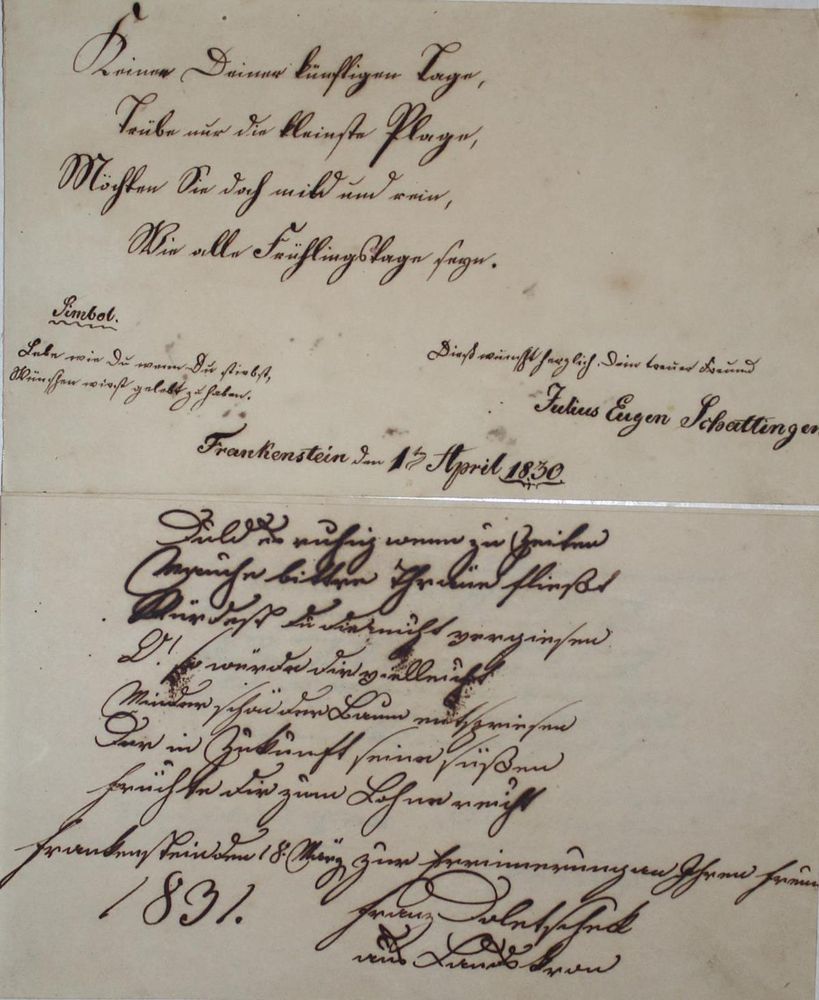 Keinen Deiner künftigen Tage,
Trübe nur die kleinste Plage,
Möchten Sie doch mild und rein,
Wie alle Frühlingstage seyn.
Simbol.
Lebe wie Du wenn Du stirbst,
Wünschen wirst gelebt zu haben.
Dieß wünscht herzlich Dein treuer Freund
Julius Eugen Schattinger
Frankenstein den 1th April 1830
Duld es ruhig wenn zu Zeiten
Manche bittre Thräne fließt
Würdest du die nicht vergiesen
O! so würde dir vielleicht
Minder schön der Baum entspriesen
Der in Zukunft seine süßen
Früchte dir zum Lohne reicht
Frankenstein den 18. März zur Errinnerung an Ihren Freun
1831.
Franz Doletscheck
aus Landskron